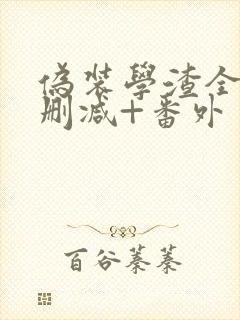 偽裝學渣全
刪減+番外
百谷蓁蓁